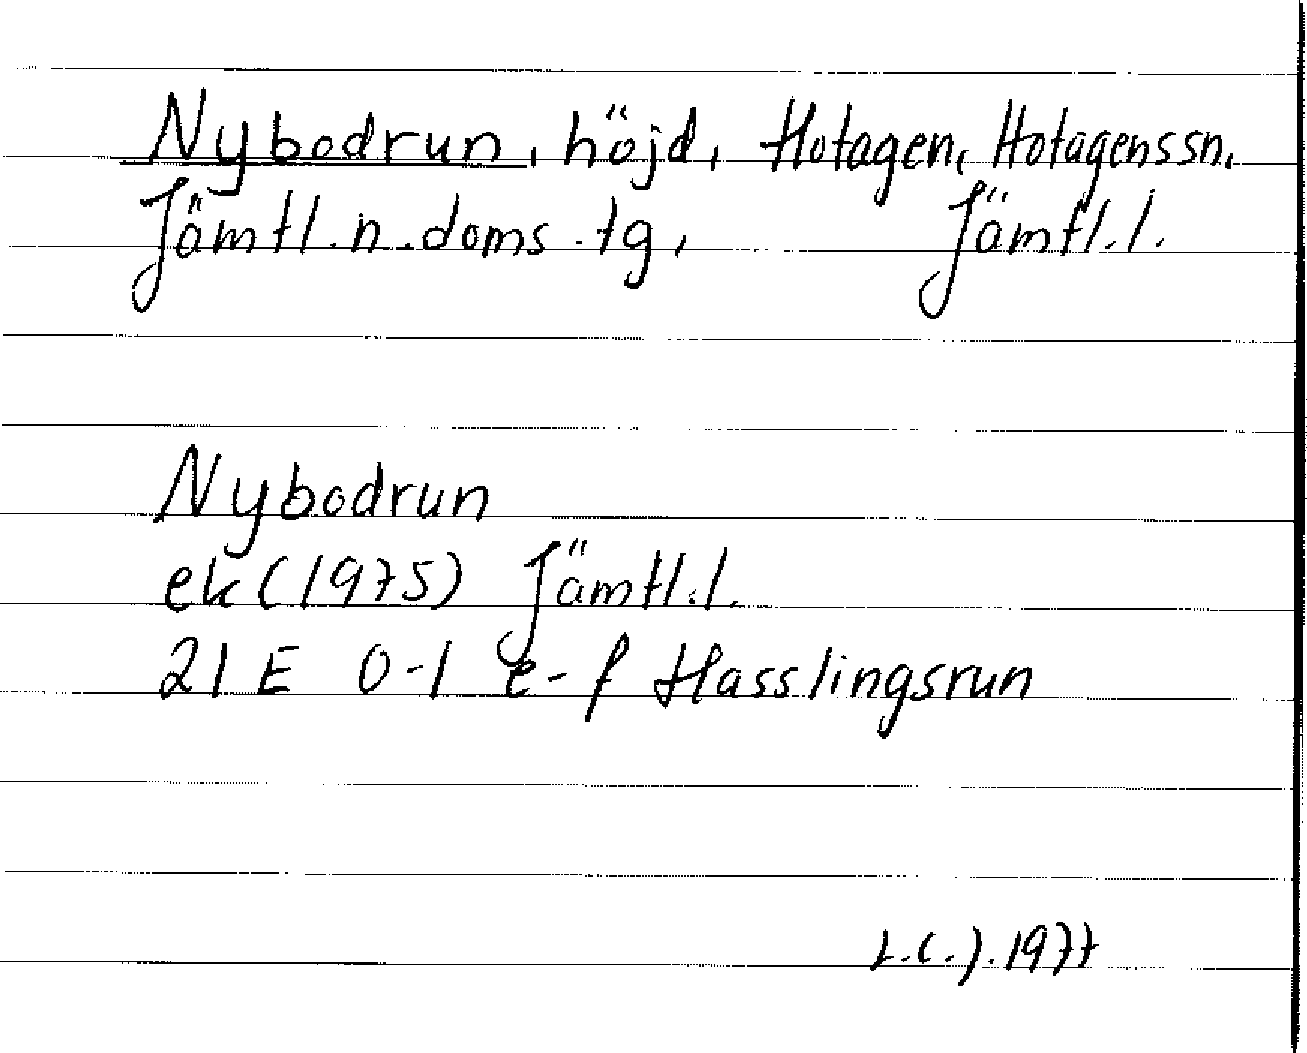 Nybodrun, höjd, Hotagen, Hotagenssn.
Jämtl.n.doms.tg, Jämtl.l.
Nybodrun
ek (1975) Jämtl.l.
21 E 0-1 e-f Hasslingsrun
L.C.J. 1977